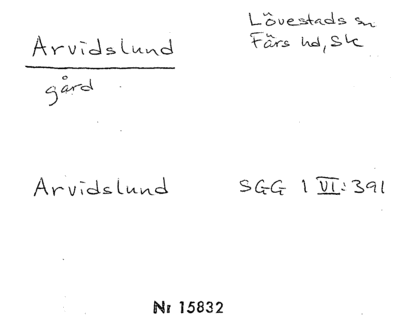 Arvidslund
Lövestads sn
Färs hd, Sk
gård
Arvidslund SGG 1 VI: 391
Nr 15832